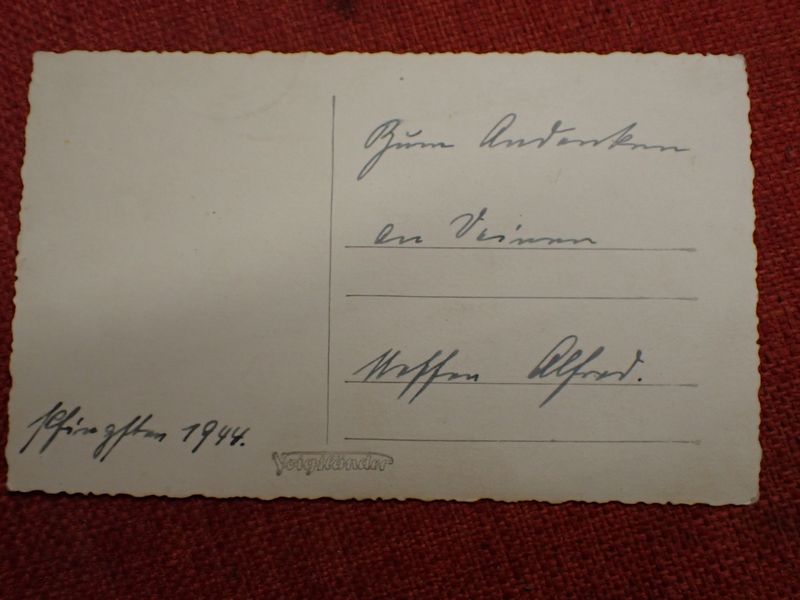 Zum Andenken
an Deinen
Neffen Alfred.
Pfingsten 1944.
Voigtländer